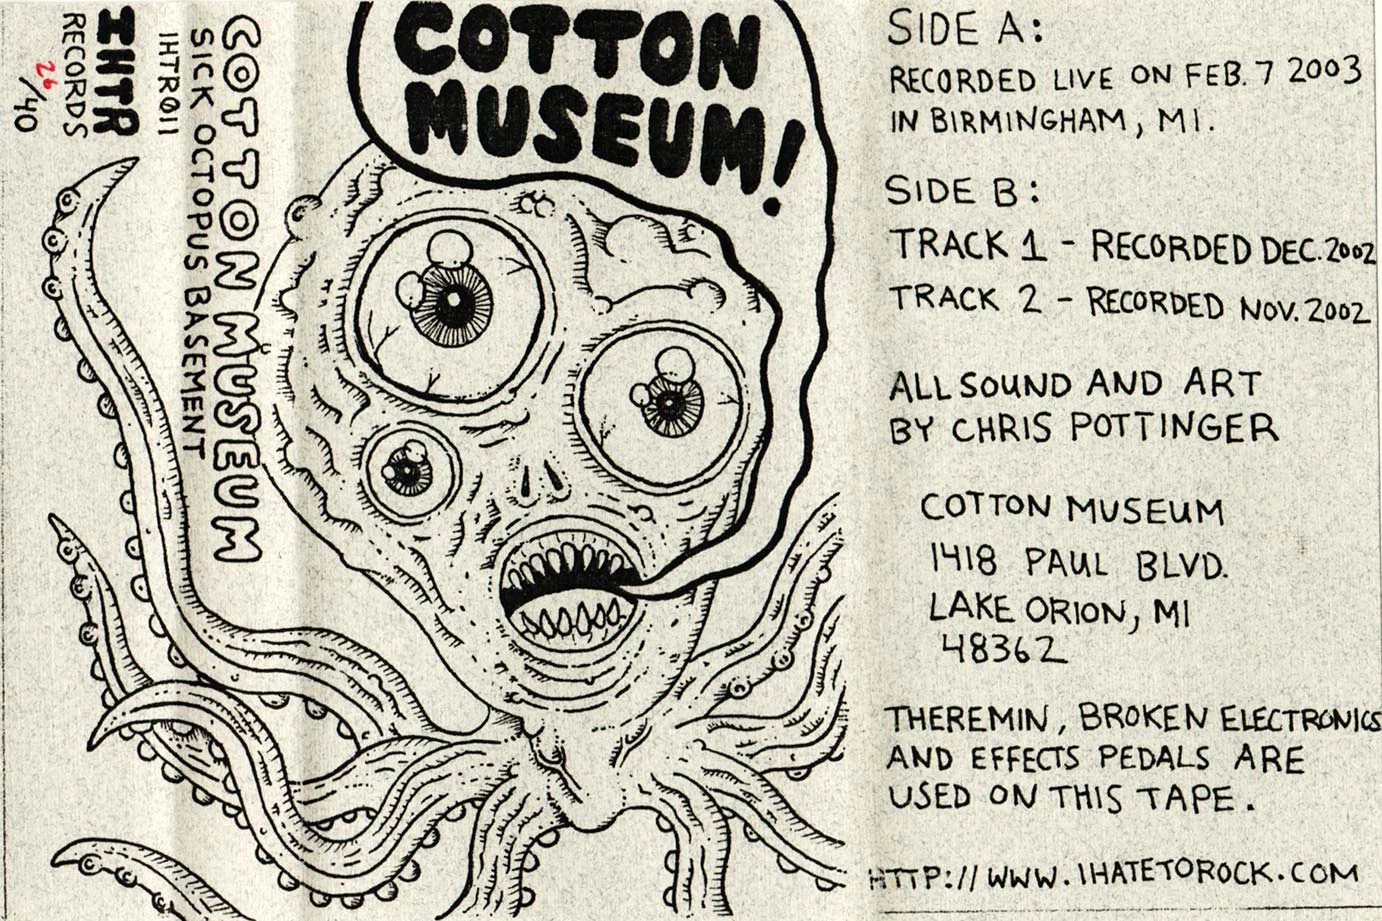 IHTR
RECORDS
26/40
COTTON MUSEUM
SICK OCTOPUS BASEMENT
IHTR011
COTTON
MUSEUM!
SIDE A:
RECORDED LIVE ON FEB. 7 2003
IN BIRMINGHAM, MI.
SIDE B:
TRACK 1 - RECORDED DEC. 2002
TRACK 2 - RECORDED NOV. 2002
ALL SOUND AND ART
BY CHRIS POTTINGER
COTTON MUSEUM
1418 PAUL BLVD.
LAKE ORION, MI
48362
THEREMIN, BROKEN ELECTRONICS
AND EFFECTS PEDALS ARE
USED ON THIS TAPE.
HTTP://WWW.IHATETOROCK.COM